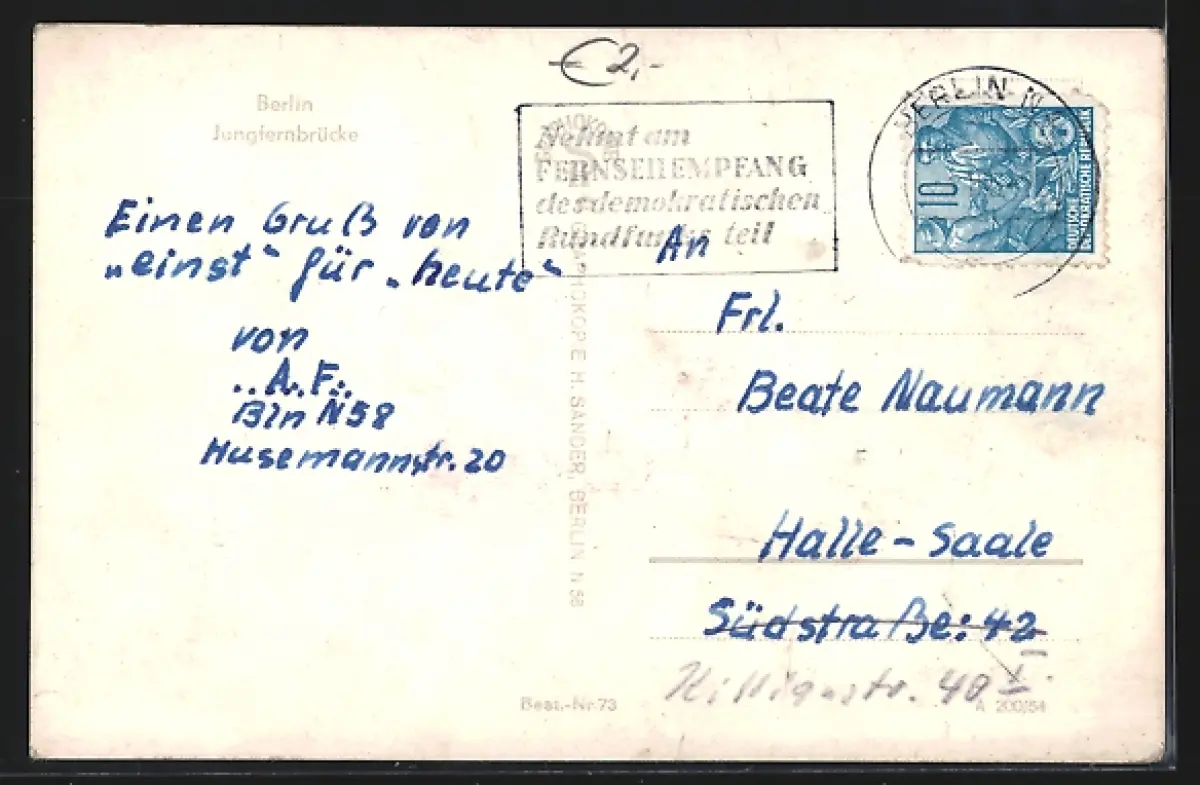 € 2,-
Berlin
Jungfernbrücke
Nehmt am
FERNSEHEMPFANG
des demokratischen
Rundfunks teil
BERLIN N
10
DEUTSCHE
DEMOKRATISCHE REPUBLIK
Einen Gruß von
„einst“ für „heute“
von
„A.F.“
Bln N58
Husemannstr. 20
PHOKOP E. H. SANDER, BERLIN N 58
An
Frl.
Beate Naumann
Halle - Saale
Südstraße: 42
40 I.
Best.-Nr. 73
A 200/54